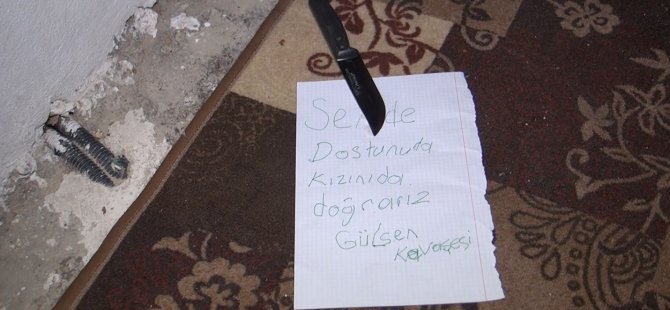 Sende
Dostunuda
kızınıda
doğrarız
Gülşen